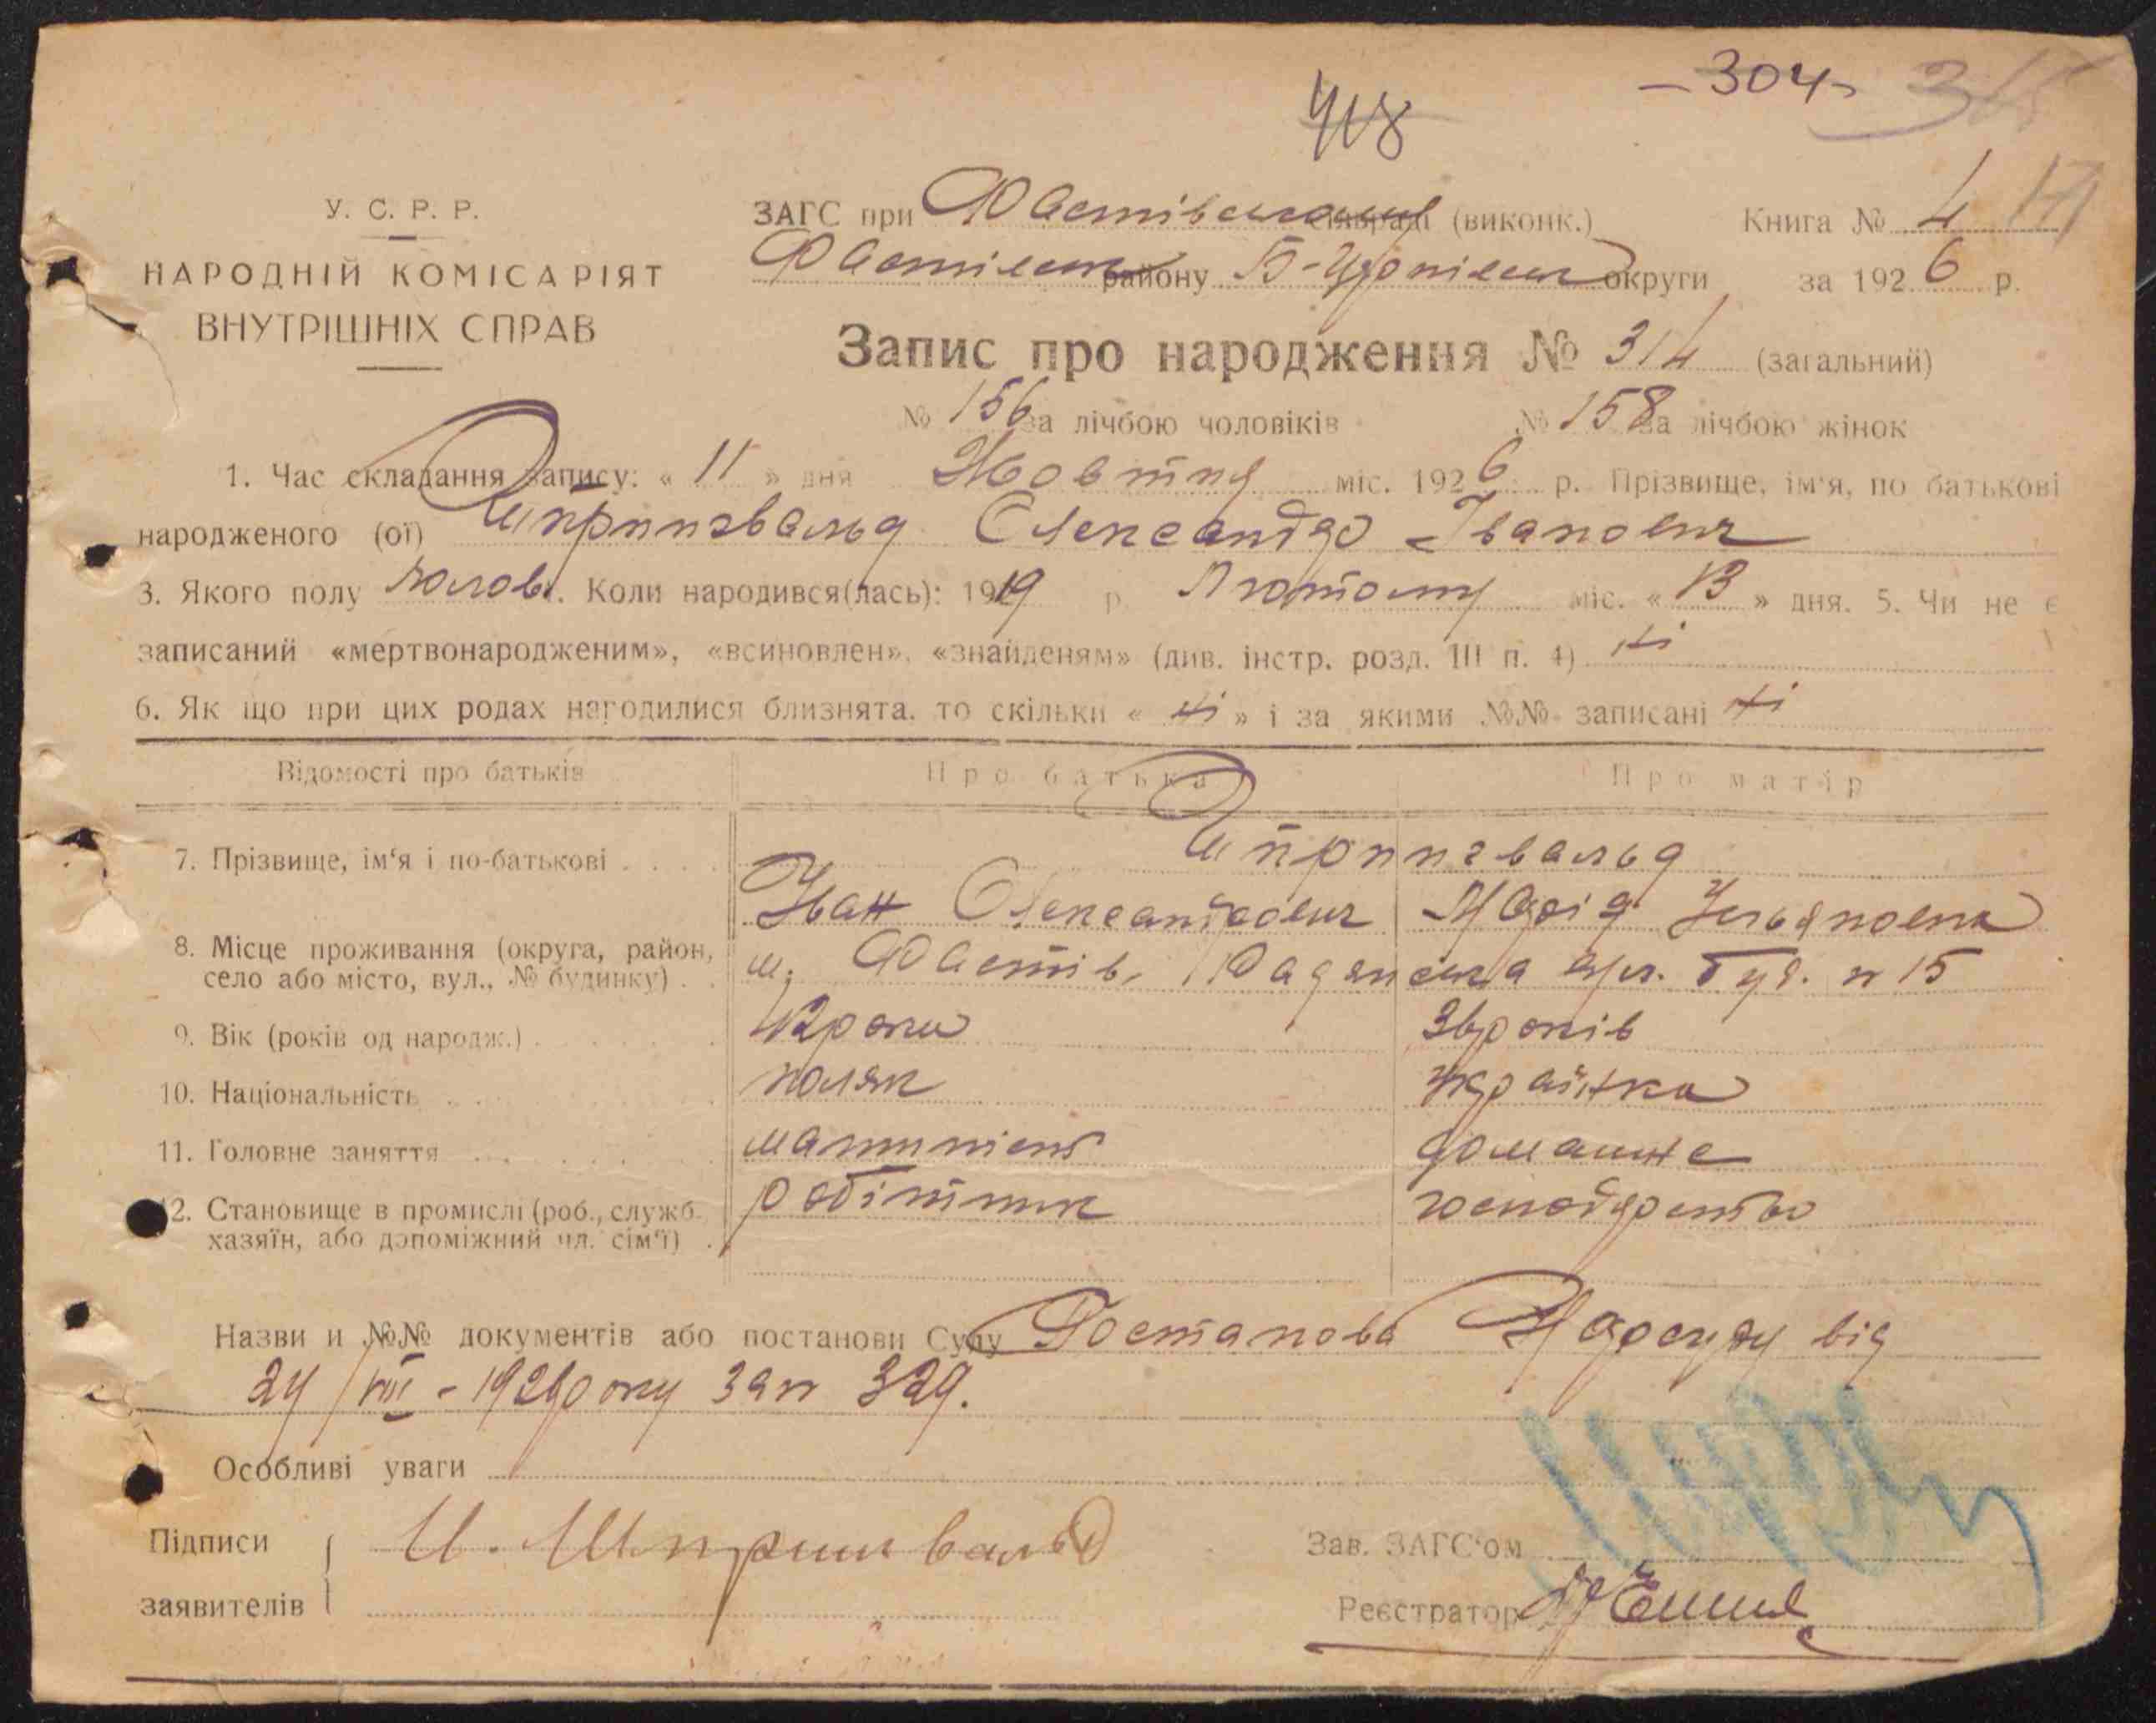 -304-
418
У. С. Р. Р.
НАРОДНІЙ КОМІСАРІЯТ
ВНУТРІШНІХ СПРАВ
ЗАГС при Фастівському сільраді (виконк.) Книга № 4 171
Фастівськ району Б-Церківськ округи за 1926 р.
Запис про народження № 314 (загальний)
№ 156 за лічбою чоловіків № 158 за лічбою жінок
1. Час складання запису: « 11 » дня Жовтня міс. 1926 р. Прізвище, ім'я, по батькові
народженого (ої) Шпрингвальд Олександр Іванович
3. Якого полу чолов. Коли народився(лась): 1919 р. Лютому міс. « 13 » дня. 5. Чи не є
записаний «мертвонародженим», «всиновлен», «знайденям» (див. інстр. розд. III п. 4) ні
6. Як що при цих родах нагодилися близнята, то скільки « ні » і за якими №№ записані ні
Відомості про батьків Про батька Про матір
7. Прізвище, ім'я і по-батькові Шпрингвальд
Іван Олександрович Марія Ульяновна
8. Місце проживання (округа, район,
село або місто, вул., № будинку) м. Фастів, Радянська вул. буд. № 15
9. Вік (років од народж.) 42 роки 36 років
10. Національність поляк українка
11. Головне заняття машиніст домашнє
12. Становище в промислі (роб., служб.
хазяїн, або допоміжний чл. сім'ї) робітник господарство
Назви и №№ документів або постанови Суду Постанова Нарсуду від
24/VIII - 1926 року за № 329.
Особливі уваги
Підписи
заявителів
И. Шпрингвальд
Зав. ЗАГС'ом
Реєстратор